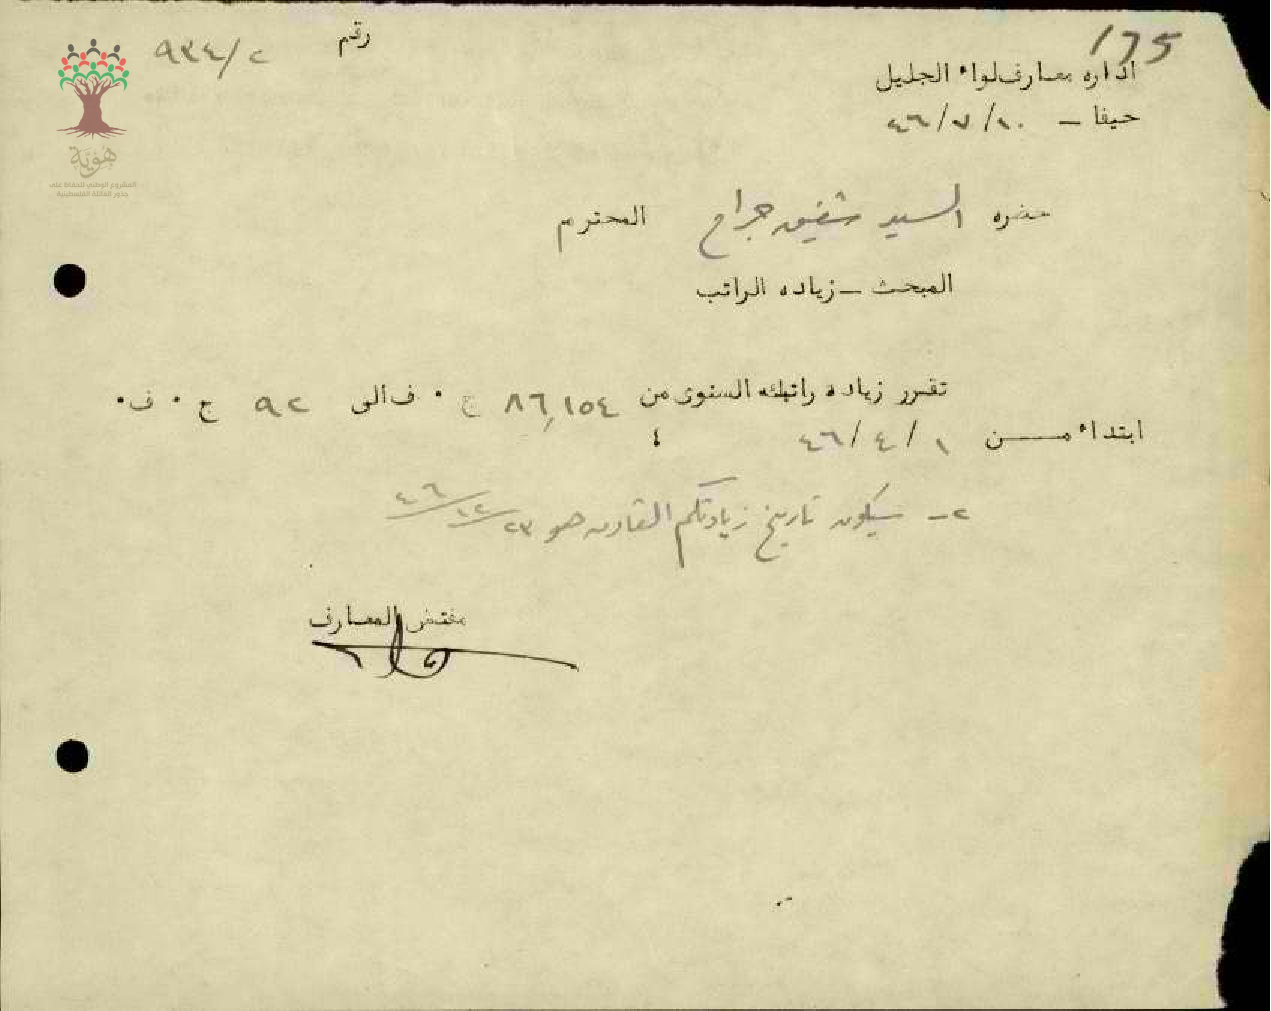 175
رقم ٩٣٤/٢
اداره معارف لواء الجليل
حيفا – ٤٦/٧/١٠
حضره السيد شفيق جراح المحترم
المبحث – زياده الراتب
تقرر زياده راتبكم السنوى من ٨٦,١٥٤ ج ٠ ف الى ٩٢ ج ٠ ف٠
ابتداء من ٤٦/٤/١
٢– سيكون تاريخ زيادتكم القادمه هو ٤٦/١٢/٢٣
مفتش المعارف
هوية
المشروع الوطني للحفاظ على
جذور العائلة الفلسطينية